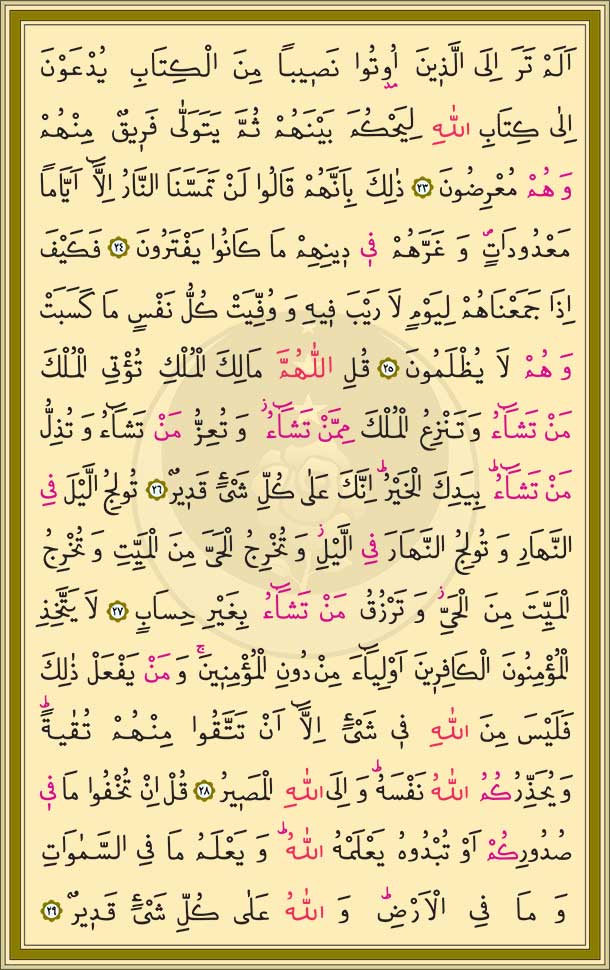 اَلَمْ تَرَ اِلَى الَّذٖينَ اُو۫تُوا نَصٖيباً مِنَ الْكِتَابِ يُدْعَوْنَ
اِلٰى كِتَابِ اللّٰهِ لِيَحْكُمَ بَيْنَهُمْ ثُمَّ يَتَوَلّٰى فَرٖيقٌ مِنْهُمْ
وَ هُمْ مُعْرِضُونَ ﴿٢٣﴾ ذٰلِكَ بِاَنَّهُمْ قَالُوا لَنْ تَمَسَّنَا النَّارُ اِلَّٓا اَيَّاماً
مَعْدُودَاتٍ وَ غَرَّهُمْ فٖي دٖينِهِمْ مَا كَانُوا يَفْتَرُونَ ﴿٢٤﴾ فَكَيْفَ
اِذَا جَمَعْنَاهُمْ لِيَوْمٍ لَا رَيْبَ فٖيهِ وَ وُفِّيَتْ كُلُّ نَفْسٍ مَا كَسَبَتْ
وَ هُمْ لَا يُظْلَمُونَ ﴿٢٥﴾ قُلِ اللّٰهُمَّ مَالِكَ الْمُلْكِ تُؤْتِي الْمُلْكَ
مَنْ تَشَٓاءُ وَ تَنْزِعُ الْمُلْكَ مِمَّنْ تَشَٓاءُؗ وَ تُعِزُّ مَنْ تَشَٓاءُ وَ تُذِلُّ
مَنْ تَشَٓاءُؕ بِيَدِكَ الْخَيْرُؕ اِنَّكَ عَلٰى كُلِّ شَيْءٍ قَدٖيرٌ ﴿٢٦﴾ تُولِجُ الَّيْلَ فِي
النَّهَارِ وَ تُولِجُ النَّهَارَ فِي الَّيْلِؗ وَ تُخْرِجُ الْحَيَّ مِنَ الْمَيِّتِ وَ تُخْرِجُ
الْمَيِّتَ مِنَ الْحَيِّؗ وَ تَرْزُقُ مَنْ تَشَٓاءُ بِغَيْرِ حِسَابٍ ﴿٢٧﴾ لَا يَتَّخِذِ
الْمُؤْمِنُونَ الْكَافِرٖينَ اَوْلِيَٓاءَ مِنْ دُونِ الْمُؤْمِنٖينَۚ وَ مَنْ يَفْعَلْ ذٰلِكَ
فَلَيْسَ مِنَ اللّٰهِ فٖي شَيْءٍ اِلَّٓا اَنْ تَتَّقُوا مِنْهُمْ تُقٰيةًؕ
وَ يُحَذِّرُكُمُ اللّٰهُ نَفْسَهُؕ وَ اِلَى اللّٰهِ الْمَصٖيرُ ﴿٢٨﴾ قُلْ اِنْ تُخْفُوا مَا فٖي
صُدُورِكُمْ اَوْ تُبْدُوهُ يَعْلَمْهُ اللّٰهُؕ وَ يَعْلَمُ مَا فِي السَّمٰوَاتِ
وَ مَا فِي الْاَرْضِؕ وَ اللّٰهُ عَلٰى كُلِّ شَيْءٍ قَدٖيرٌ ﴿٢٩﴾